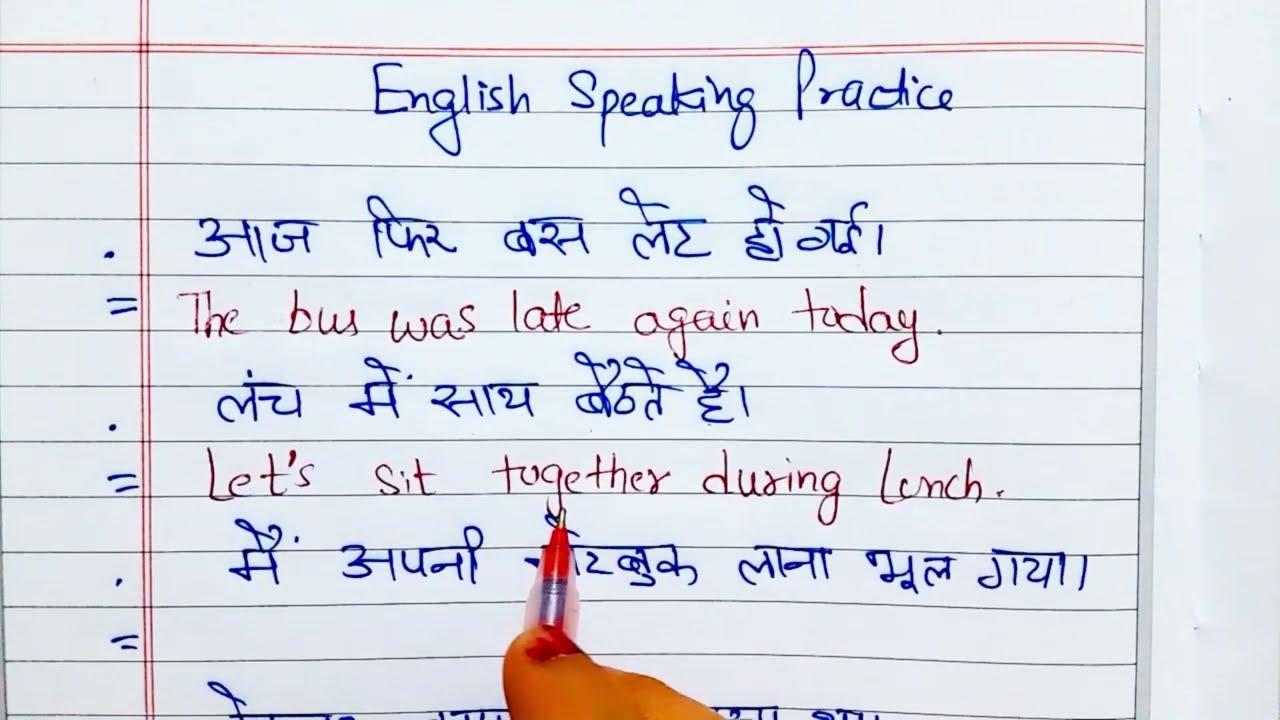 English Speaking Practice
. आज फिर बस लेट हो गई।
= The bus was late again today.
. लंच में साथ बैठते है।
= Let's sit together during Lunch.
. मैं अपनी नोटबुक लाना भूल गया।
=